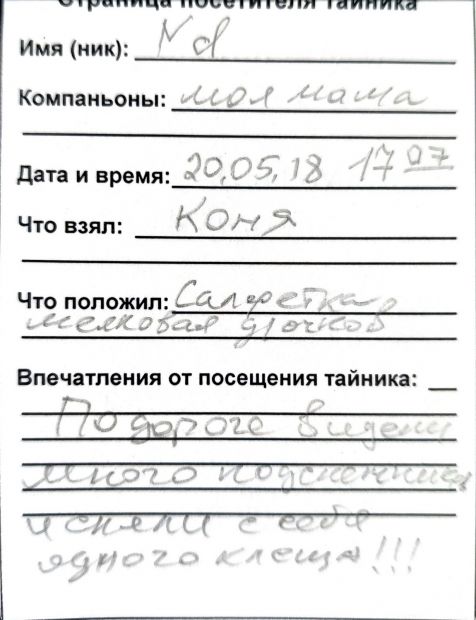 Страница посетителя тайника
Имя (ник): Nd
Компаньоны: моя мама
Дата и время: 20.05.18 17 07
Что взял: Коня
Что положил: Салфетка
мелковая
Впечатления от посещения тайника:
По дороге видели
много подснежников
и сняли с себя
ядного клеща!!!